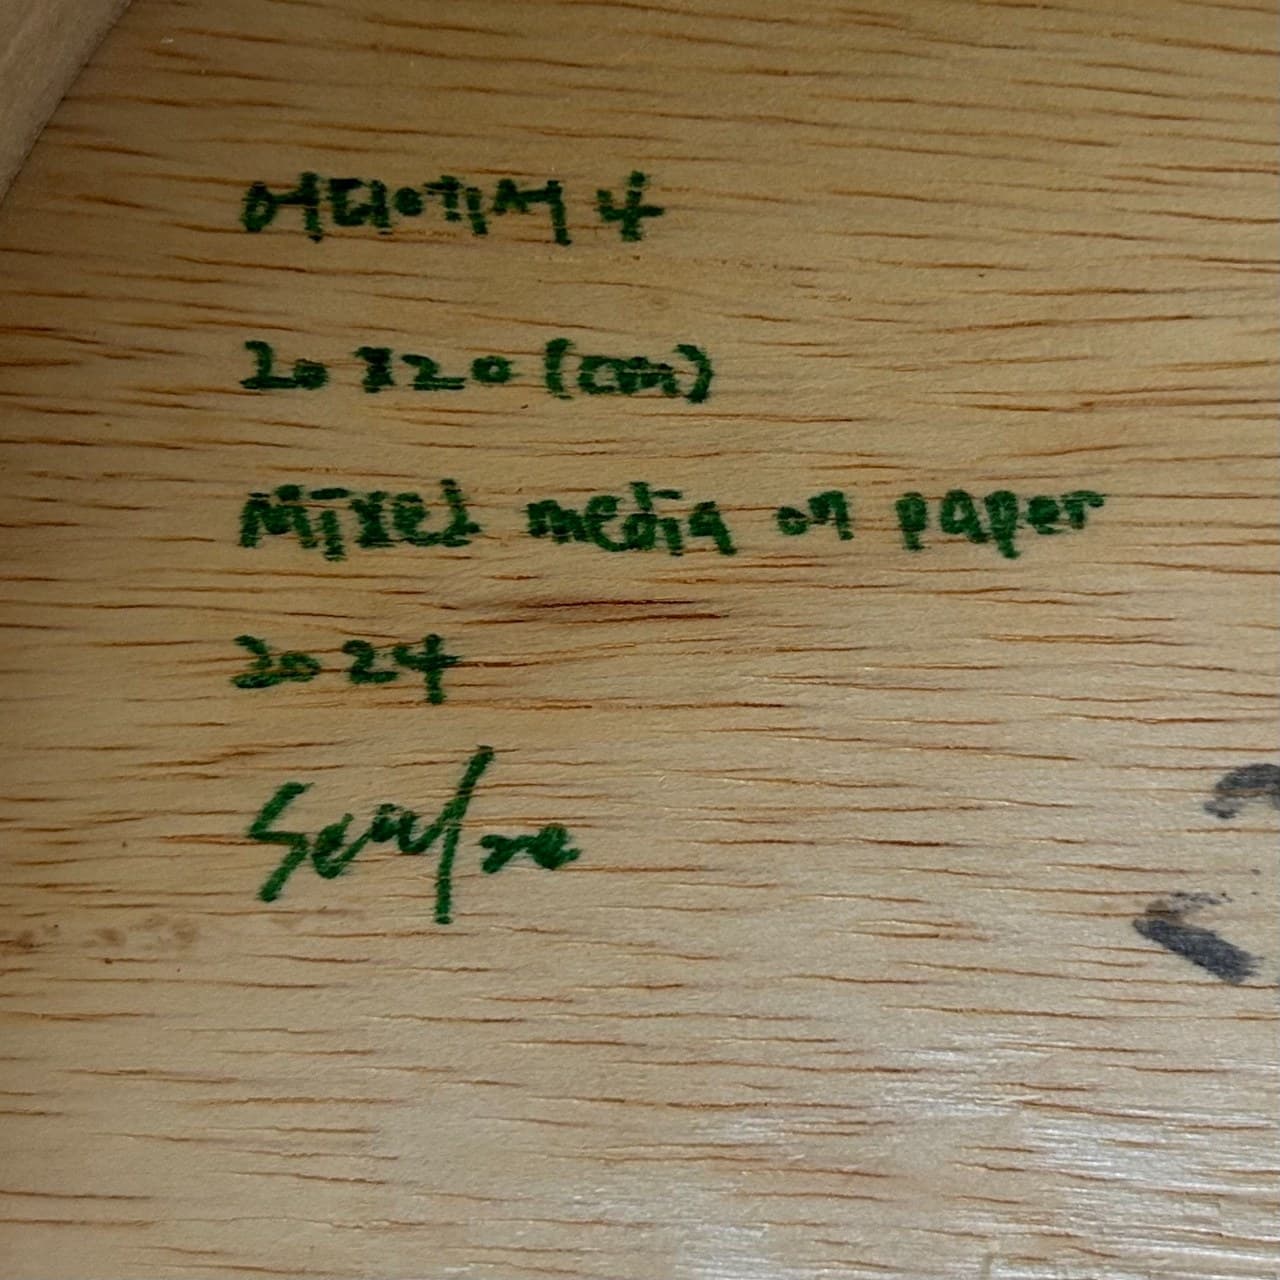 어디에서 4
20 x 20 (cm)
Mixed media on paper
2024